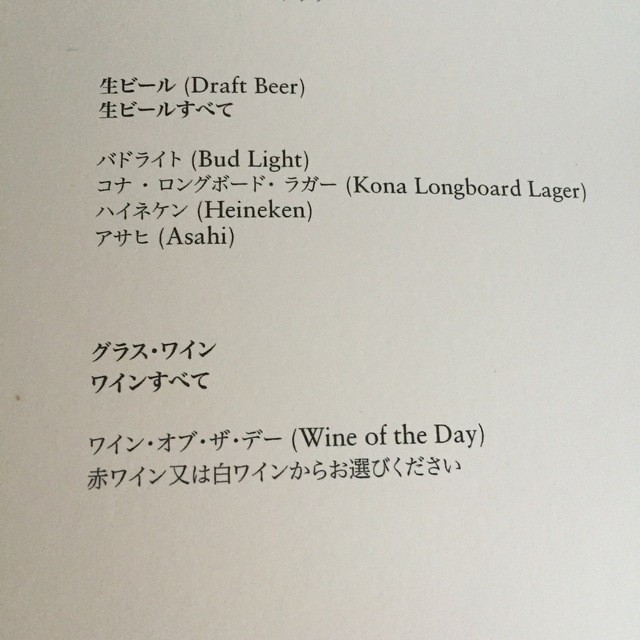 生ビール (Draft Beer)
生ビールすべて
バドライト (Bud Light)
コナ・ロングボード・ラガー (Kona Longboard Lager)
ハイネケン (Heineken)
アサヒ (Asahi)
グラス・ワイン
ワインすべて
ワイン・オブ・ザ・デー (Wine of the Day)
赤ワイン又は白ワインからお選びください